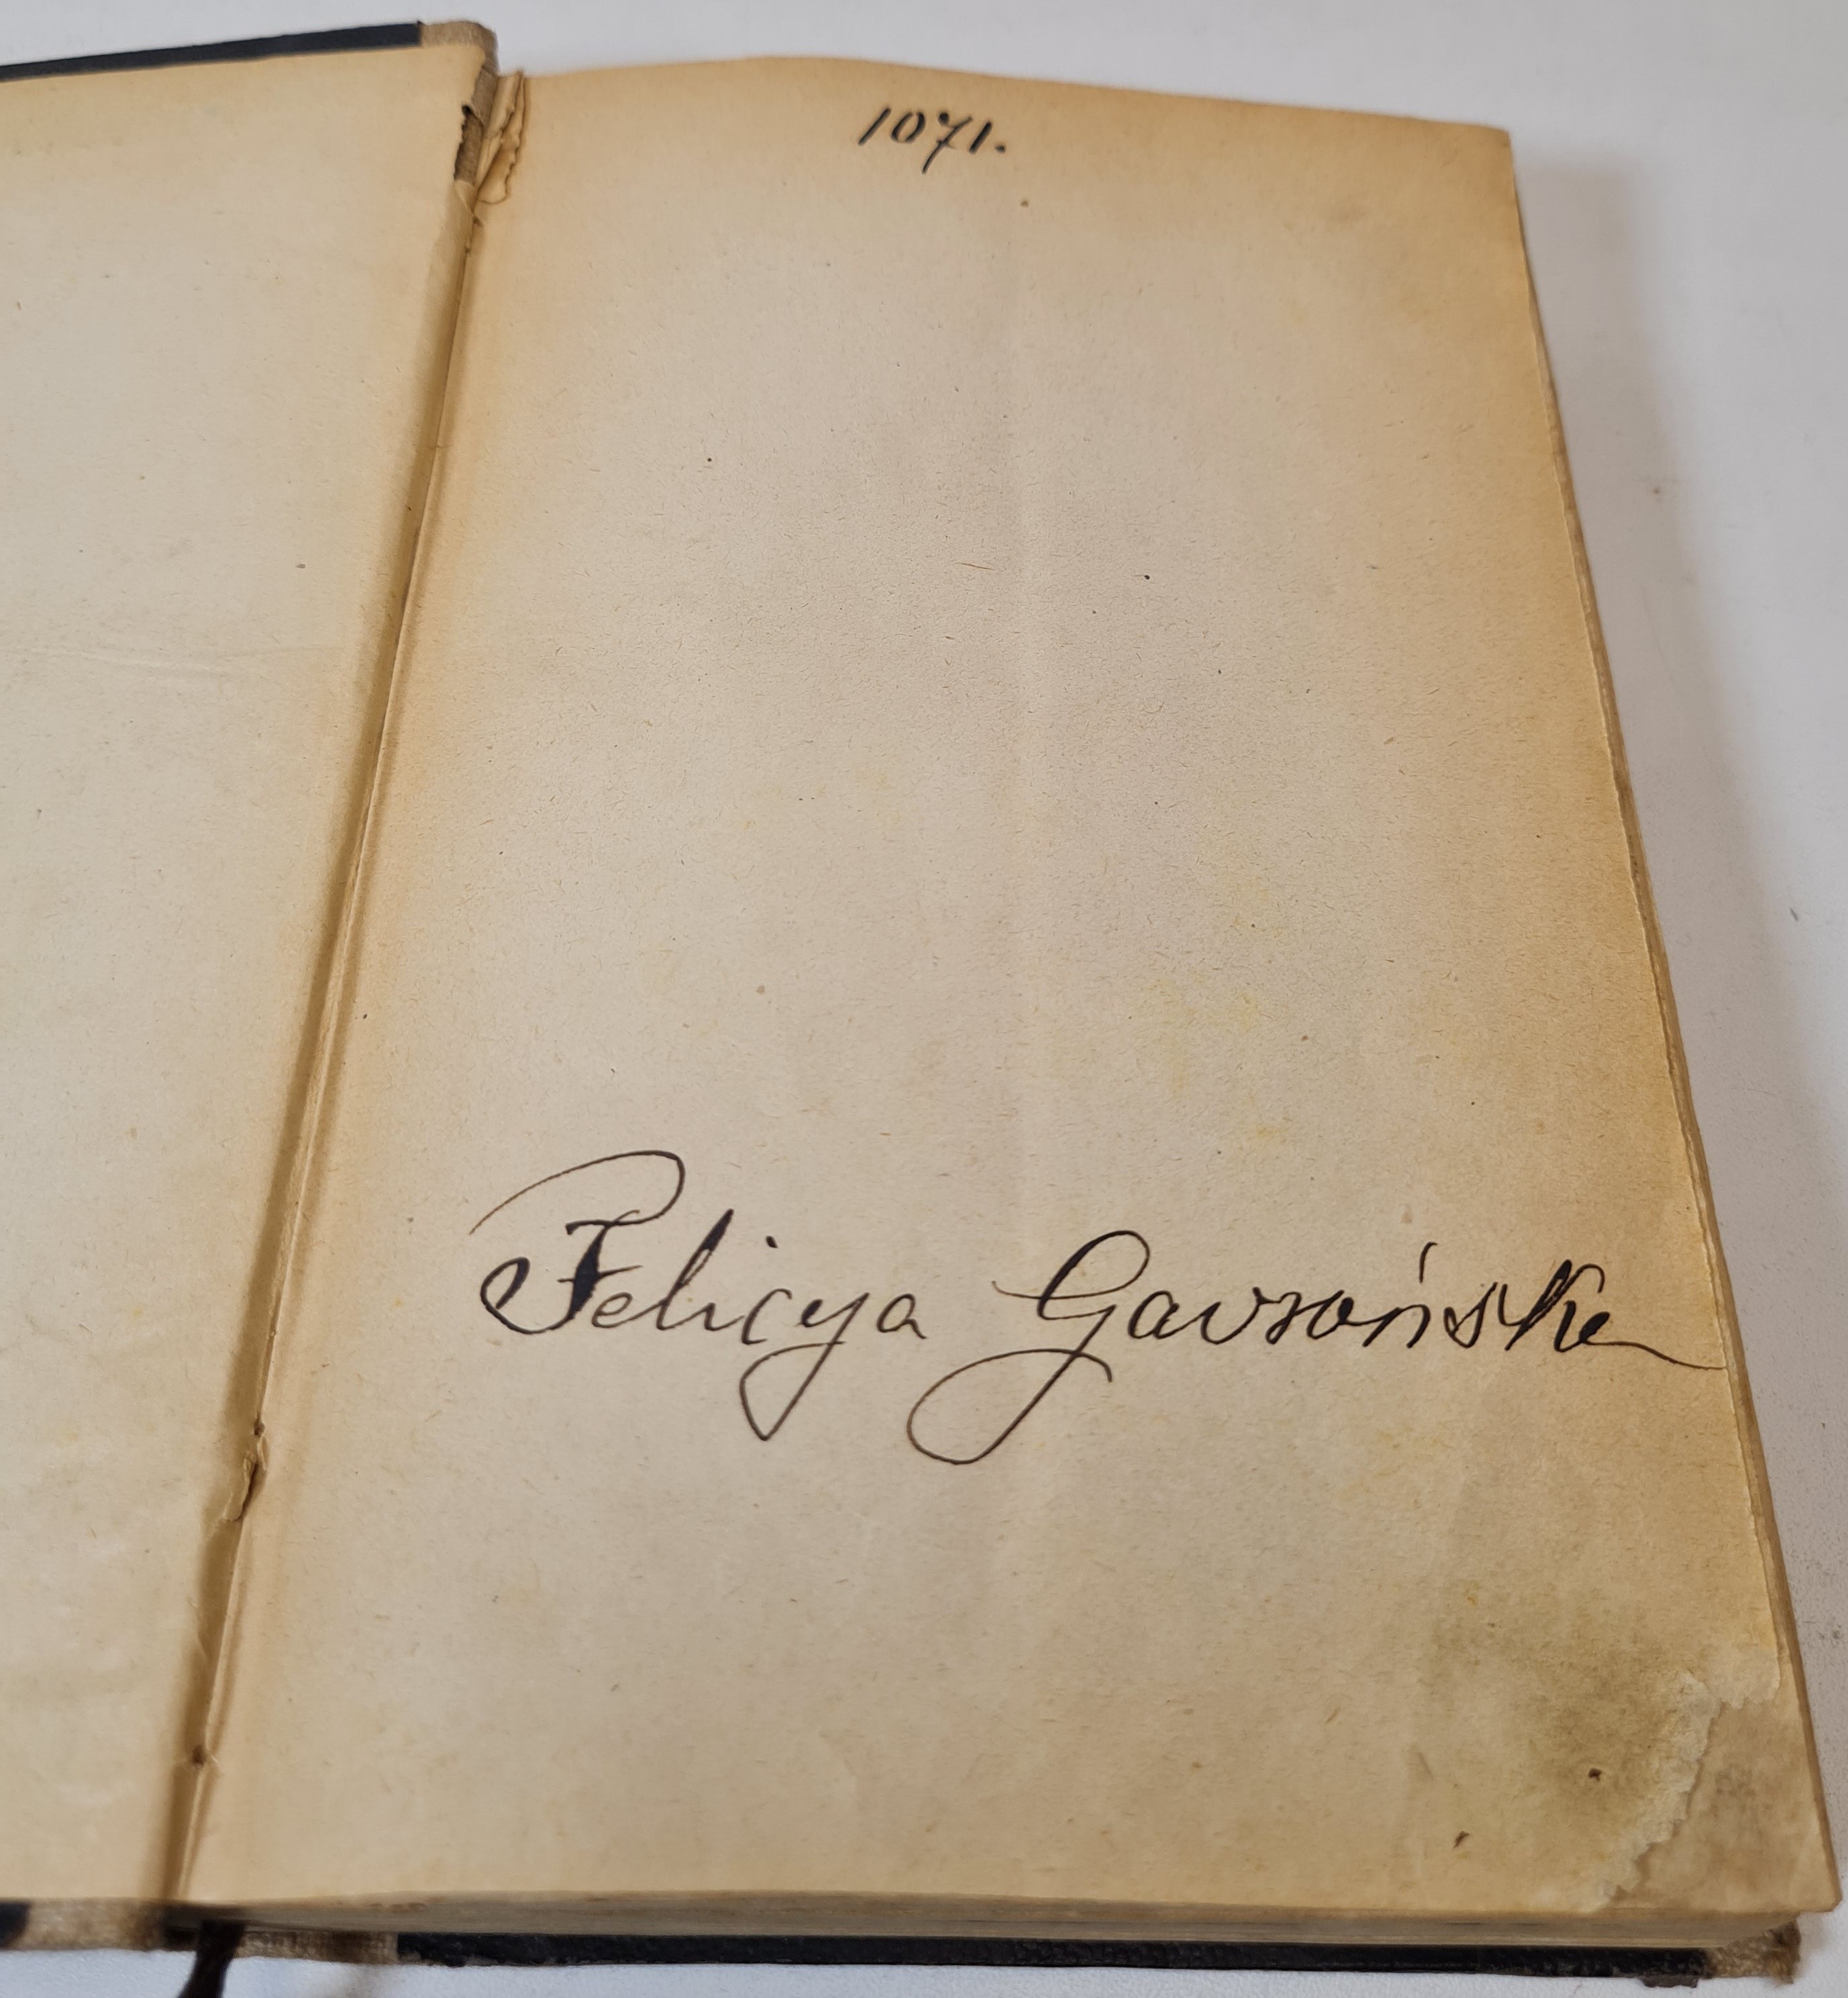 1071.
Felicya Gawrońska